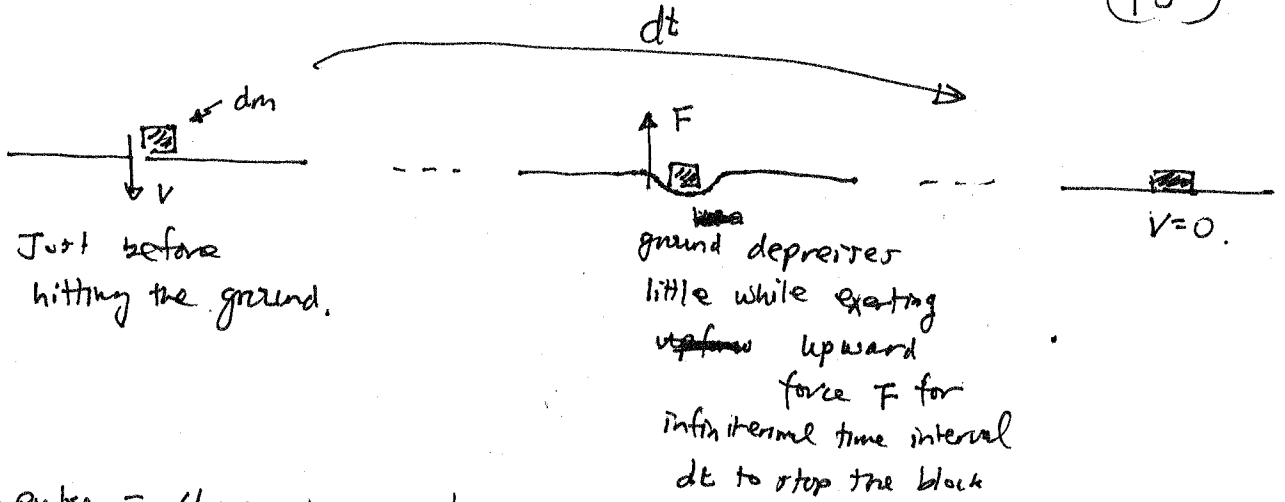 dt
dm
F
V
Just before
hitting the ground.
ground depresses
little while exerting
upward
force F for
infinitesimal time interval
dt to stop the block
V=0.